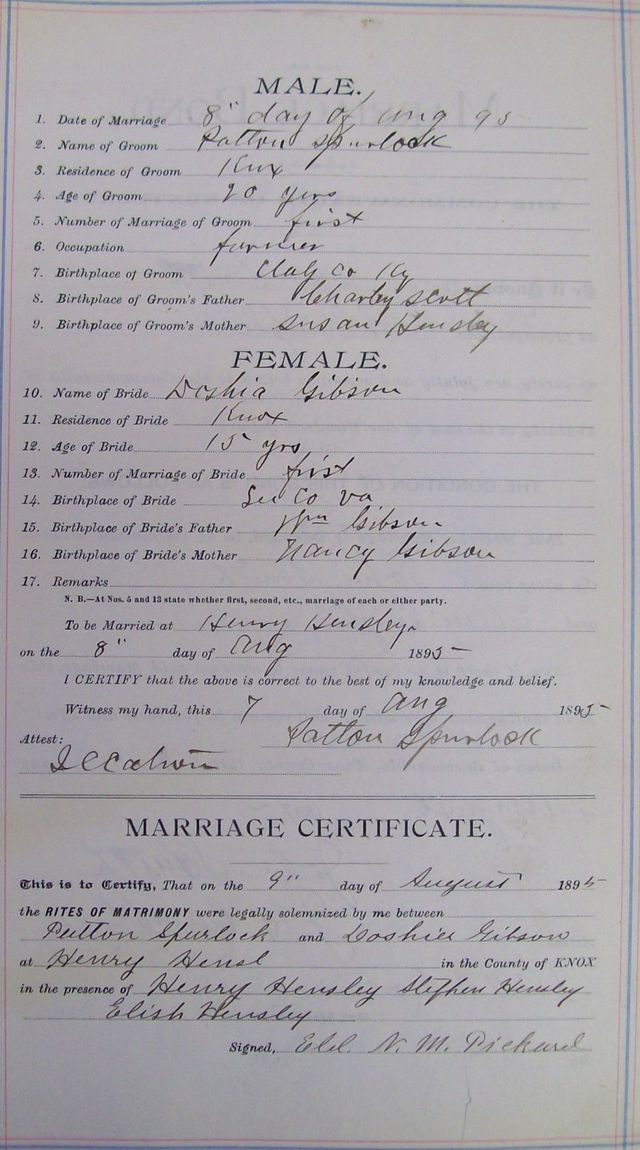 MALE.
1. Date of Marriage 8" day of Aug 95
2. Name of Groom Patton Spurlock
3. Residence of Groom Knx
4. Age of Groom 20 yers
5. Number of Marriage of Groom first
6. Occupation farmer
7. Birthplace of Groom Clay Co Ky
8. Birthplace of Groom's Father Charley Scott
9. Birthplace of Groom's Mother Susan Hensley
FEMALE.
10. Name of Bride Doshia Gibson
11. Residence of Bride Knox
12. Age of Bride 15 yrs
13. Number of Marriage of Bride first
14. Birthplace of Bride Co va
15. Birthplace of Bride's Father Wm Gibson
16. Birthplace of Bride's Mother Nancy Gibson
17. Remarks
N. B.—At Nos. 5 and 13 state whether first, second, etc., marriage of each or either party.
To be Married at Henry Hensleys
on the 8" day of Aug 1895
I CERTIFY that the above is correct to the best of my knowledge and belief.
Witness my hand, this 7 day of Aug 1895
Patton Spurlock
Attest:
MARRIAGE CERTIFICATE.
This is to Certify, That on the 9" day of August 1895
the RITES OF MATRIMONY were legally solemnized by me between
Patton Spurlock and Doshia Gibson
at Henry Hensl in the County of KNOX
in the presence of Henry Hensley Stephen Hensley
Elish Hensley
Signed, Eld. N. M. Pickard